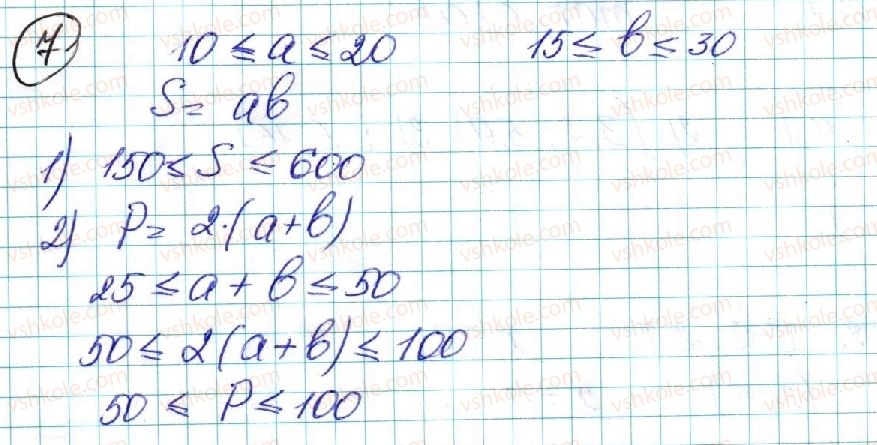 7 10 ≤ a ≤ 20 15 ≤ b ≤ 30
S = ab
1) 150 ≤ S ≤ 600
2) P = 2·(a+b)
25 ≤ a + b ≤ 50
50 ≤ 2(a+b) ≤ 100
50 ≤ P ≤ 100
vshkole.com